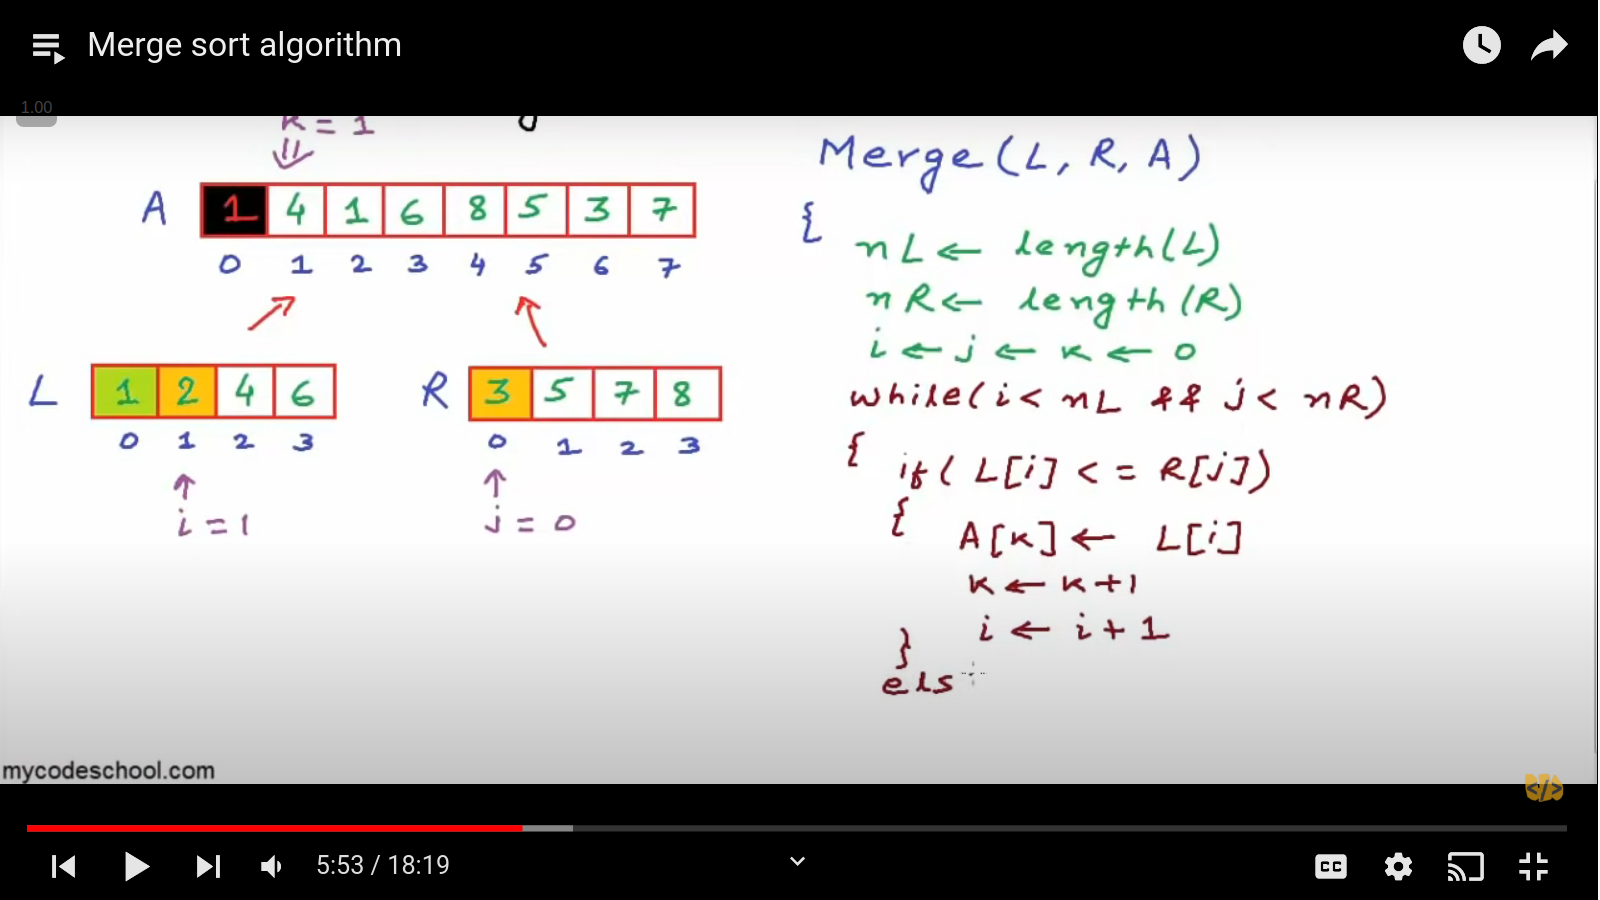 Merge sort algorithm
1.00
k = 1
A 1 4 1 6 8 5 3 7
0 1 2 3 4 5 6 7
L 1 2 4 6
0 1 2 3
i = 1
R 3 5 7 8
0 1 2 3
j = 0
Merge(L, R, A)
{
nL ← length(L)
nR ← length(R)
i ← j ← k ← 0
while(i < nL && j < nR)
{
if( L[i] <= R[j])
{
A[k] ← L[i]
k ← k+1
i ← i+1
}
els
mycodeschool.com
</>
5:53 / 18:19
CC